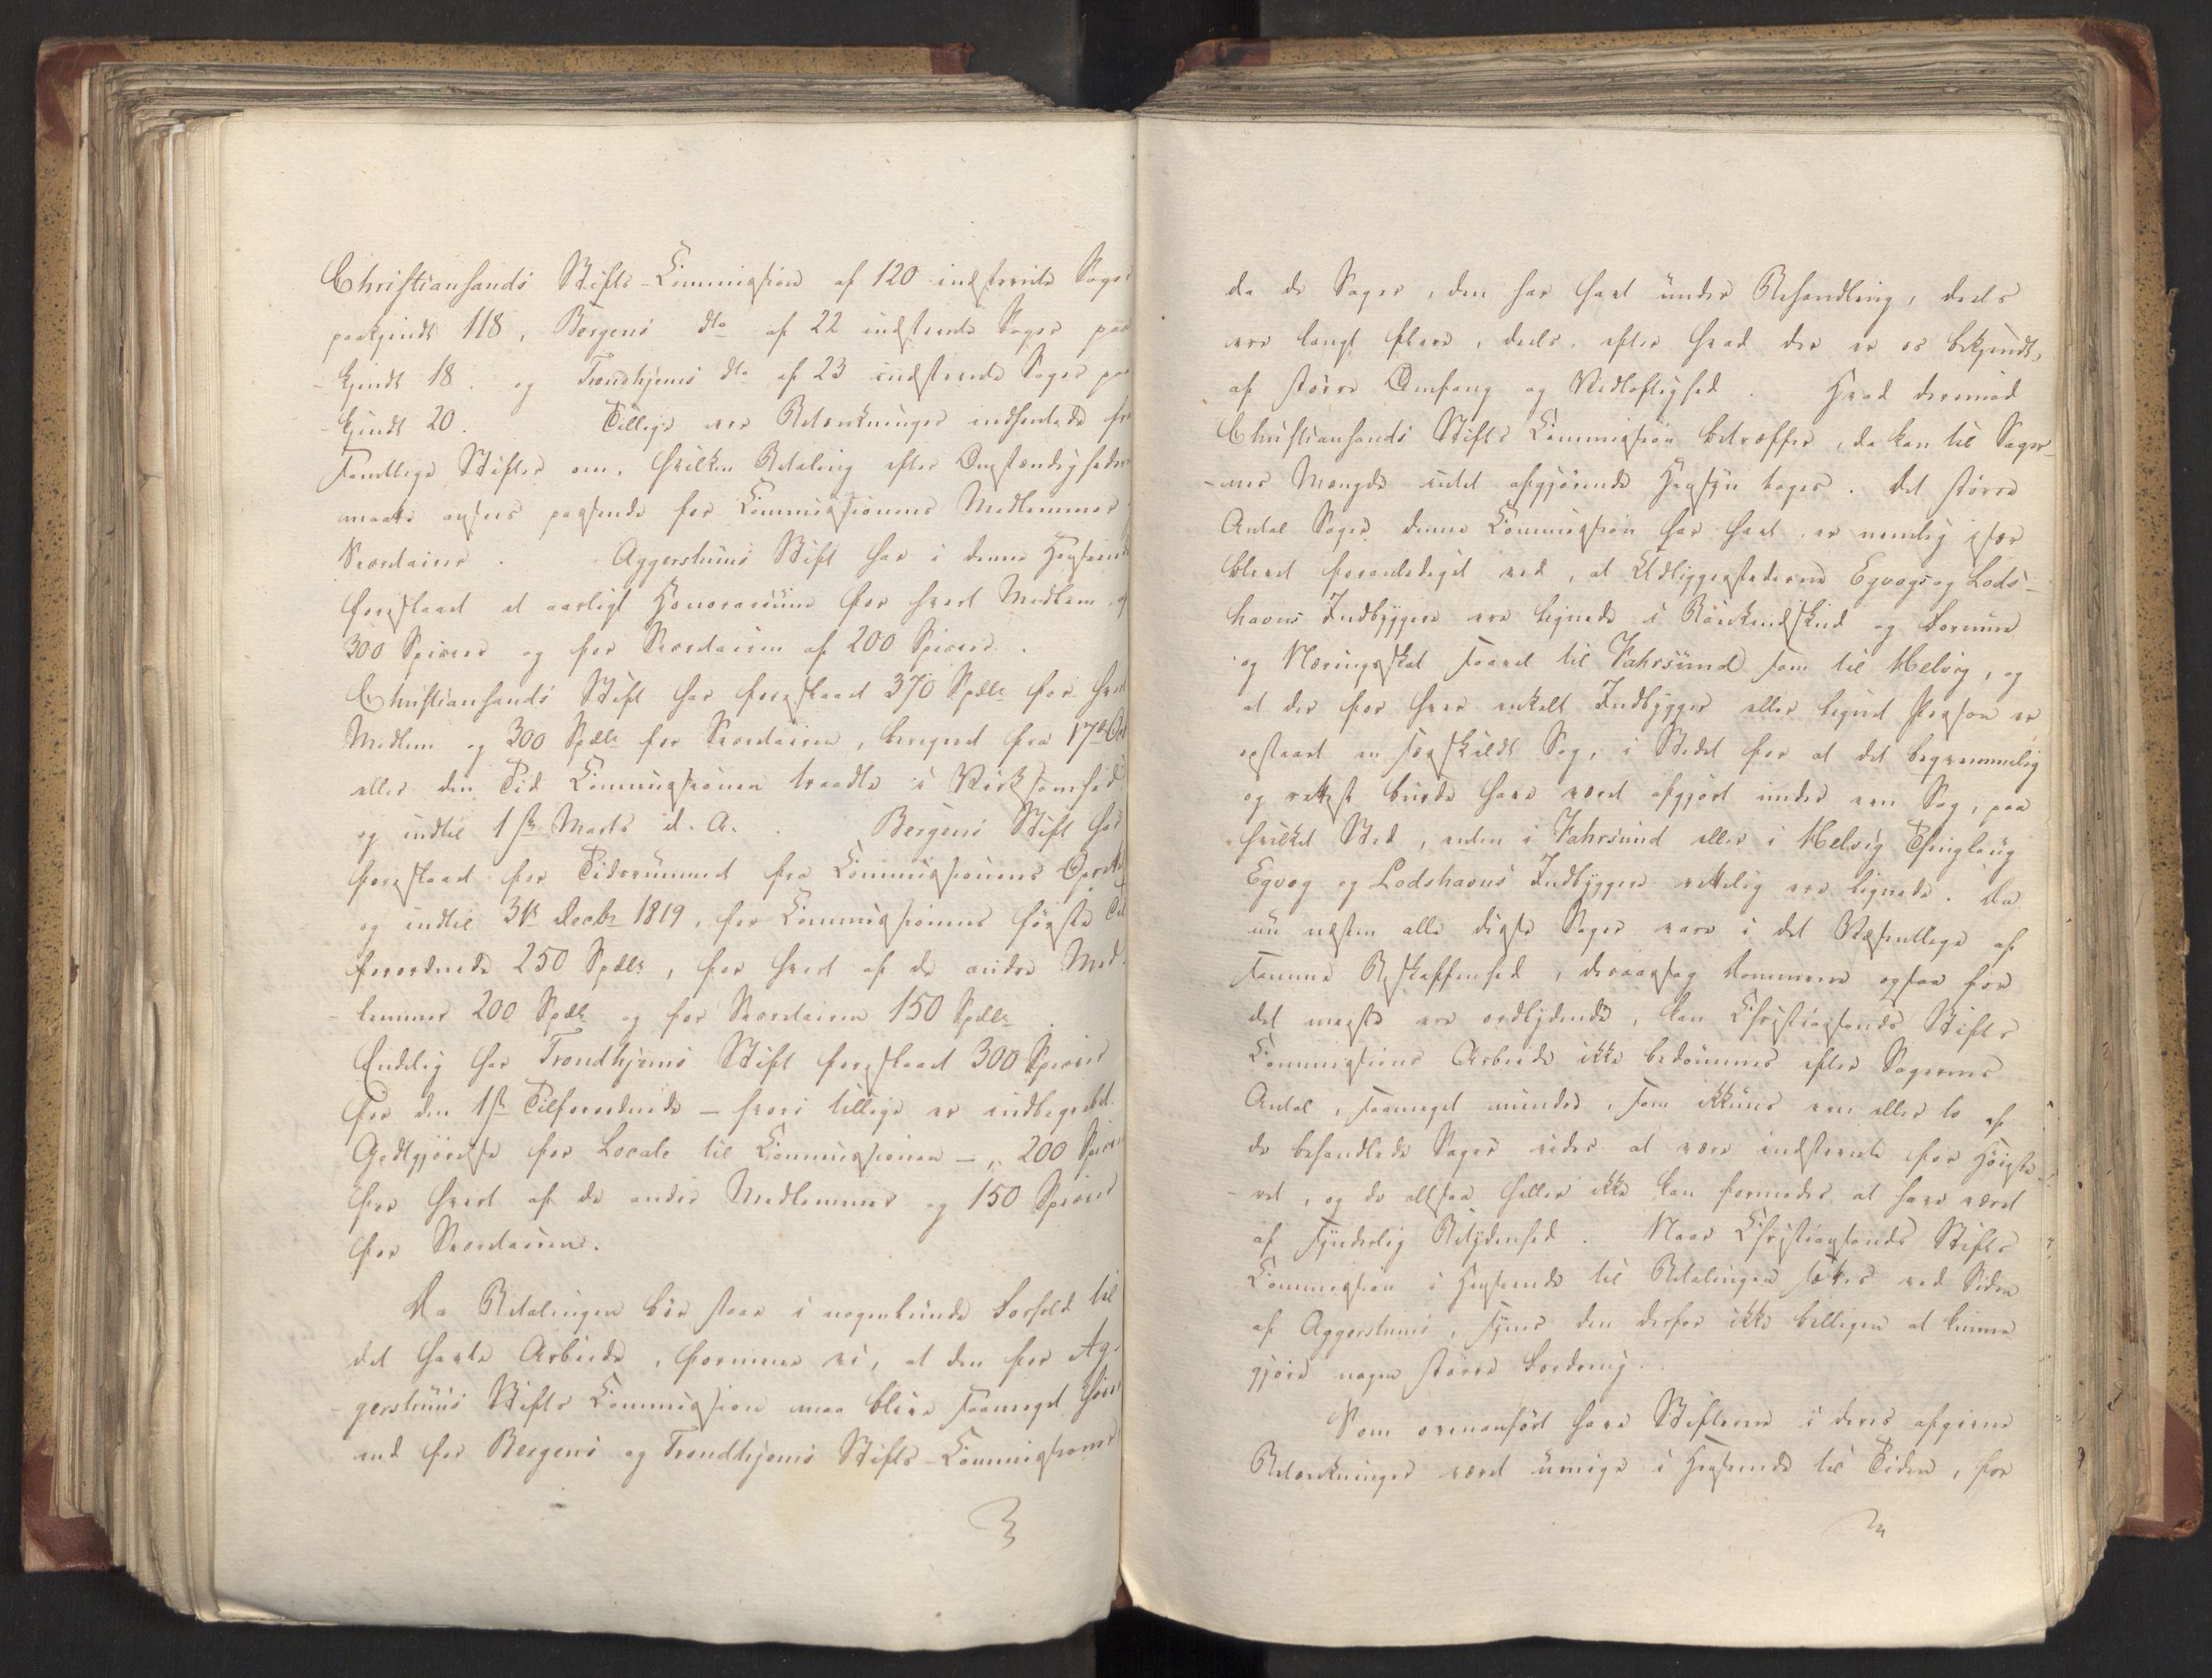 Christiansands Stifts-Commission af 120 indstevnte Sager
paakjendt 118, Bergens dto af 22 indstevnte Sager paa-
-kjendt 18. og Trondhjems dto af 23 indstevnte Sager paa-
-kjendt 20. Tillige ere Betænkninger indhentede fra
samtlige Stifter om, hvilken Betaling efter Omstændighederne
maatte ansees passende for Commissionens Medlemmer og
Secretairer. Aggershuus Stift har i denne Henseende
foreslaaet et aarligt Honorarium for hvert Medlem af
300 Specier og for Secretairen af 200 Specier.
Christiansands Stift har foreslaaet 370 Spdlr for hvert
Medlem og 300 Spdlr for Secretairen, beregnet fra 17de Oct
eller den Tid Commissionen traadte i Virksomhed
og indtil 1ste Marts d. A. Bergens Stift har
foreslaaet for Tidsrummet fra Commissionens Oprettelse
og indtil 31te Decbr 1819, for Commissionens første Til-
forordnede 250 Spdlr, for hvert af de andre Med-
-lemmer 200 Spdlr og for Secretairen 150 Spdlr.
Endelig har Trondhjems Stift foreslaaet 300 Specier
for den 1ste Tilforordnede - hvori tillige er indbegrebet
Godtgjørelse for Locale til Commissionen - 200 Specier
for hvert af de andre Medlemmer og 150 Specier
for Secretairen.
Da Betalingen bør staae i nogenlunde Forhold til
det havte Arbeide, formene vi, at den for Ag-
-gershuus Stifts Commission maa blive saameget høiere
end for Bergens og Trondhjems Stifts-Commissioner
da de Sager, den har havt under Behandling, deels
ere langt flere, deels, efter hvad der er os bekjendt,
af større Omfang og Vidløftighed. Hvad derimod
Christiansands Stifts Commission betræffer, da kan til Sager-
-nes Mængde intet afgjørende Hensyn tages. Det større
Antal Sager denne Commission har havt er nemlig især
blevet foranlediget ved, at Udliggerstederne Egvogs og Lods-
havns Indbyggere ere lignede i Kjendskud og Formue
og Næringsskat saavel til Fahrsund som til Helvig, og
at der for hver enkelt Indbygger eller lignet Person er
opstaaet en særskildt Sag, i Stedet for at det beqvemmelig
og rettest burde have været afgjort under een Sag, paa
hvilket Sted, enten i Fahrsund eller i Helvig Thinglaug
Egvog og Lodshavns Indbyggere rettelig ere lignede. Da
nu næsten alle disse Sager vare i det Væsentlige af
samme Beskaffenhed, desaarsag Dommene ogsaa for
det meste ere ordlydende, kan Christiansands Stifts
Commissions Arbeide ikke bedømmes efter Sagernes
Antal, saameget mindre, som ikkuns een eller to af
de behandlede Sager vides at være indstevnte for Høieste-
-ret, og de altsaa heller ikke kan formodes at have været
af synderlig Betydenhed. Naar Christiansands Stifts
Commission i Henseende til Betalingen sættes ved Siden
af Aggershuus, synes den derfor ikke billigen at kunne
gjøre nogen større Fordring.
Som ovenanført have Stifterne i deres afgivne
Betænkninger været uenige i Henseende til Tiden, for